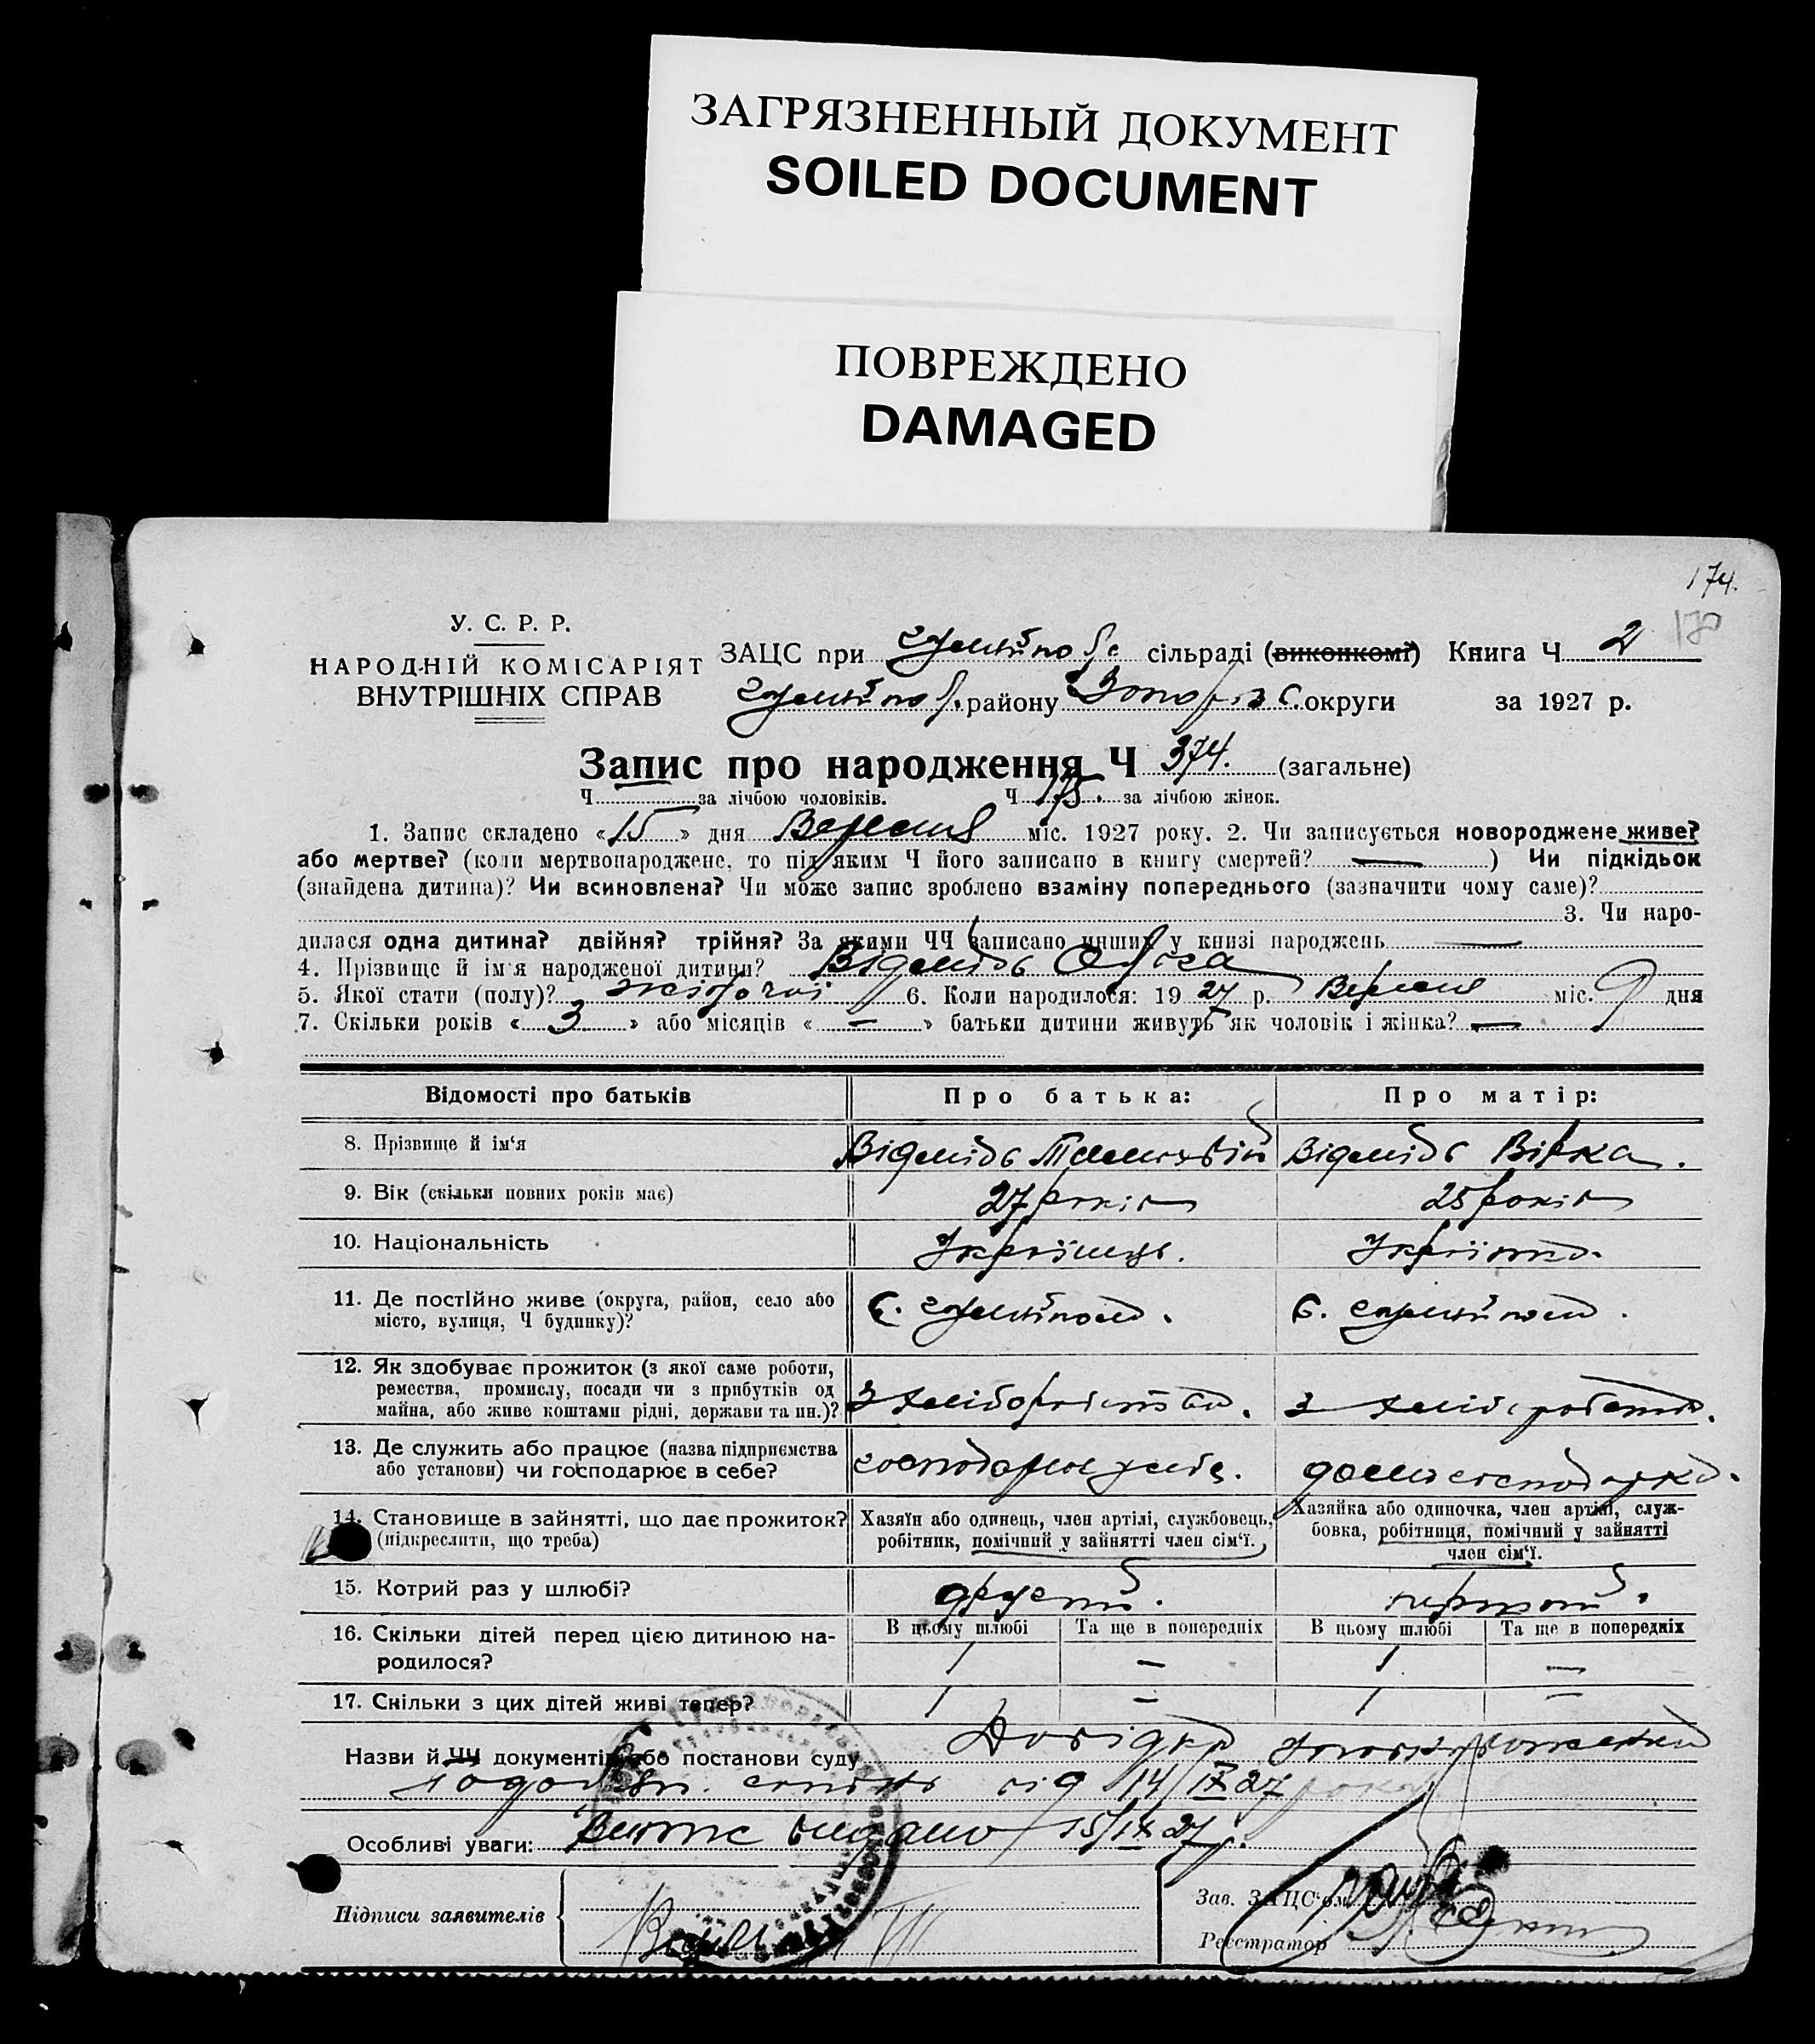 ЗАГРЯЗНЕННЫЙ ДОКУМЕНТ
SOILED DOCUMENT
ПОВРЕЖДЕНО
DAMAGED
174.
170
У. С. Р. Р.
НАРОДНІЙ КОМІСАРІЯТ
ВНУТРІШНІХ СПРАВ
ЗАЦС при сільраді (виконкомі) Книга Ч 2
району округи за 1927 р.
Запис про народження Ч 374. (загальне)
Ч за лічбою чоловіків. Ч 175. за лічбою жінок.
1. Запис складено «15» дня Вересня міс. 1927 року. 2. Чи записується новороджене живе?
або мертве? (коли мертвонароджене, то під яким Ч його записано в книгу смертей? — ) Чи підкідьок
(знайдена дитина)? Чи всиновлена? Чи може запис зроблено взаміну попереднього (зазначити чому саме)?
3. Чи наро-
дилася одна дитина? двійня? трійня? За якими ЧЧ записано инших у книзі народжень —
4. Прізвище й ім'я народженої дитини? Відмідь Ольга
5. Якої стати (полу)? жіночої 6. Коли народилося: 1927 р. Вересня міс. 9 дня
7. Скільки років «3» або місяців «—» батьки дитини живуть як чоловік і жінка? —
Відомості про батьків
Про батька:
Про матір:
8. Прізвище й ім‘я Відмідь Тимофій Відмідь Вірка.
9. Вік (скільки повних років має) 27 років 25 років
10. Національність Українець. Українка.
11. Де постійно живе (округа, район, село або
місто, вулиця, Ч будинку)?
12. Як здобуває прожиток (з якої саме роботи,
ремества, промислу, посади чи з прибутків од
майна, або живе коштами рідні, держави та ин.)? З хліборобства. З хліборобства.
13. Де служить або працює (назва підприємства
або установи) чи господарює в себе? господарює у себе. домогосподарка.
14. Становище в зайнятті, що дає прожиток?
(підкреслити, що треба)
Хазяїн або одинець, член артілі, службовець,
робітник, помічний у зайнятті член сім‘ї.
Хазяйка або одиночка, член артілі, служ-
бовка, робітниця, помічний у зайнятті
член сім‘ї.
15. Котрий раз у шлюбі? другий. перший.
16. Скільки дітей перед цією дитиною на-
родилося?
В цьому шлюбі Та ще в попередніх В цьому шлюбі Та ще в попередніх
1 — 1 —
17. Скільки з цих дітей живі тепер? 1 — 1 —
Назви й ЧЧ документів або постанови суду Довідка
від 14/IX 27 року
Особливі уваги: Витяг видано 15/IX 27 р.
Підписи заявителів
Зав. ЗАЦС‘ом
Реєстратор